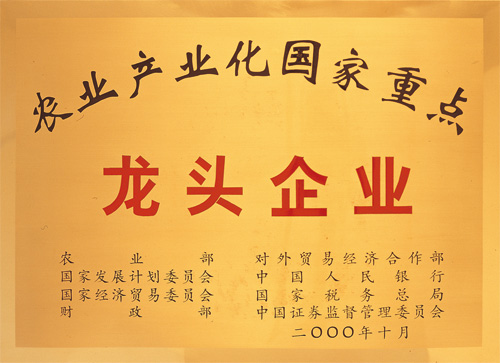 农业产业化国家重点
龙头企业
农业部 对外贸易经济合作部
国家发展计划委员会 中国人民银行
国家经济贸易委员会 国家税务总局
财政部 中国证券监督管理委员会
二〇〇〇年十月